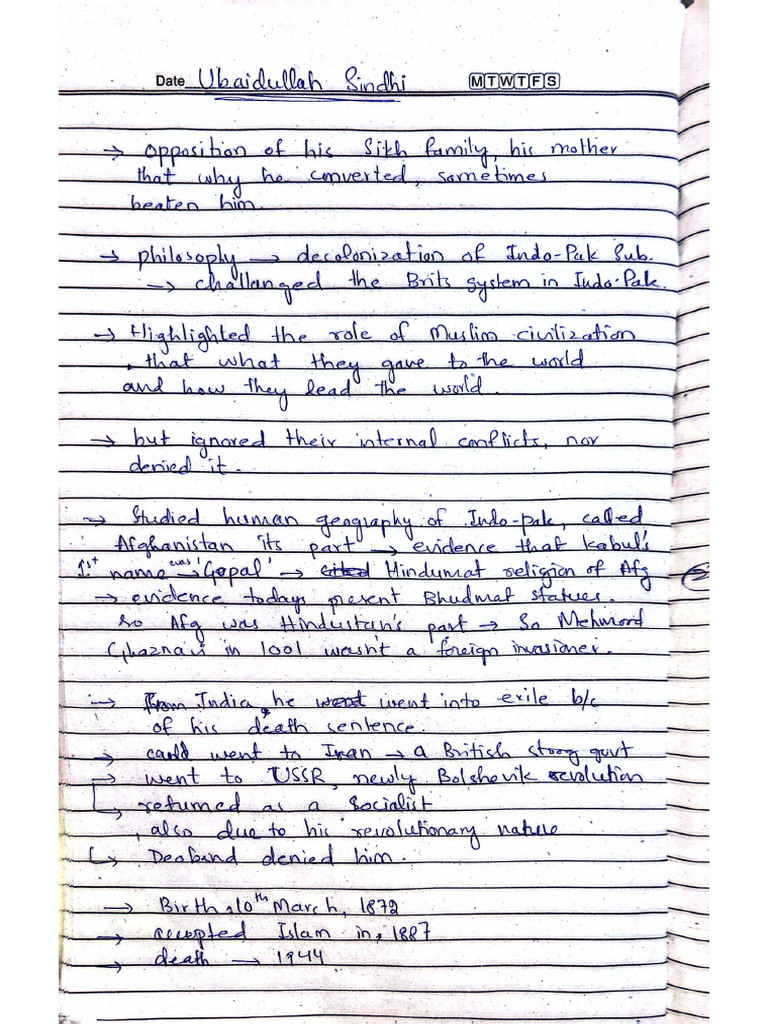 Date Ubaidullah Sindhi M T W T F S
→ opposition of his Sikh family, his mother
that why he converted, sometimes
beaten him.
→ philosophy → decolonization of Indo-Pak Sub.
→ challanged the Brits system in Indo-Pak.
→ Highlighted the role of Muslim civilization
, that what they gave to the world
and how they lead the world.
→ but ignored their internal conflicts, nor
denied it.
→ Studied human geography of Indo-pak, called
Afghanistan its part → evidence that Kabul's
1st name was → 'Gopal' → Hindumat religion of Afg
→ evidence todays present Bhudmat statues.
so Afg was Hindustan's part → So Mehmood
Ghaznavi in 1001 wasn't a foreign invasioner.
→ From India, he went into exile b/c
of his death sentence.
→ could went to Iran → a British strong govt
→ went to USSR, newly Bolshevik revolution
→ returned as a Socialist
, also due to his revolutionary nature
→ Deoband denied him.
→ Birth, 10th March, 1872
→ accepted Islam in, 1887
→ death → 1944